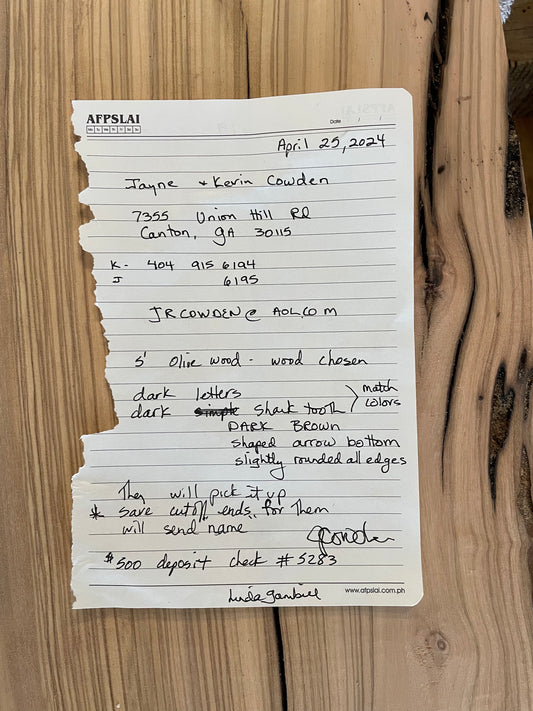 AFPSLAI
Mo Tu We Th Fr Sa Su
Date / /
April 25, 2024
Jayne + Kevin Cowden
7355 Union Hill Rd
Canton, GA 30115
K - 404 915 6194
J 6195
JRCOWDEN@AOL.COM
5' Olive wood - wood chosen
dark letters
dark simple Shark tooth
match colors
DARK BROWN
shaped arrow bottom
slightly rounded all edges
They will pick it up
* save cutoff ends for them
will send name
JCowden
$500 deposit check # 5283
Linda Gambill
www.afpslai.com.ph